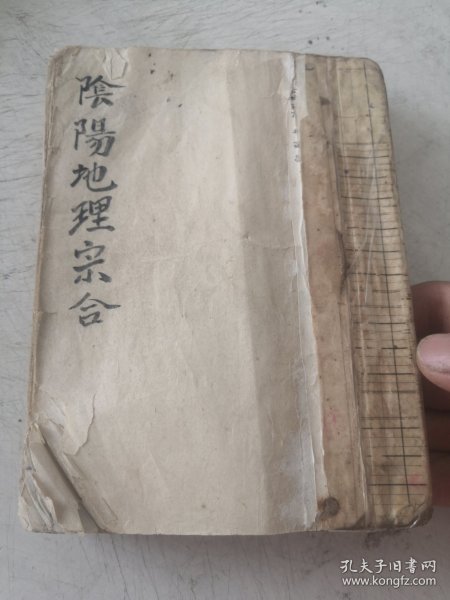 陰陽地理宗合
孔夫子旧书网
www.kongfz.com